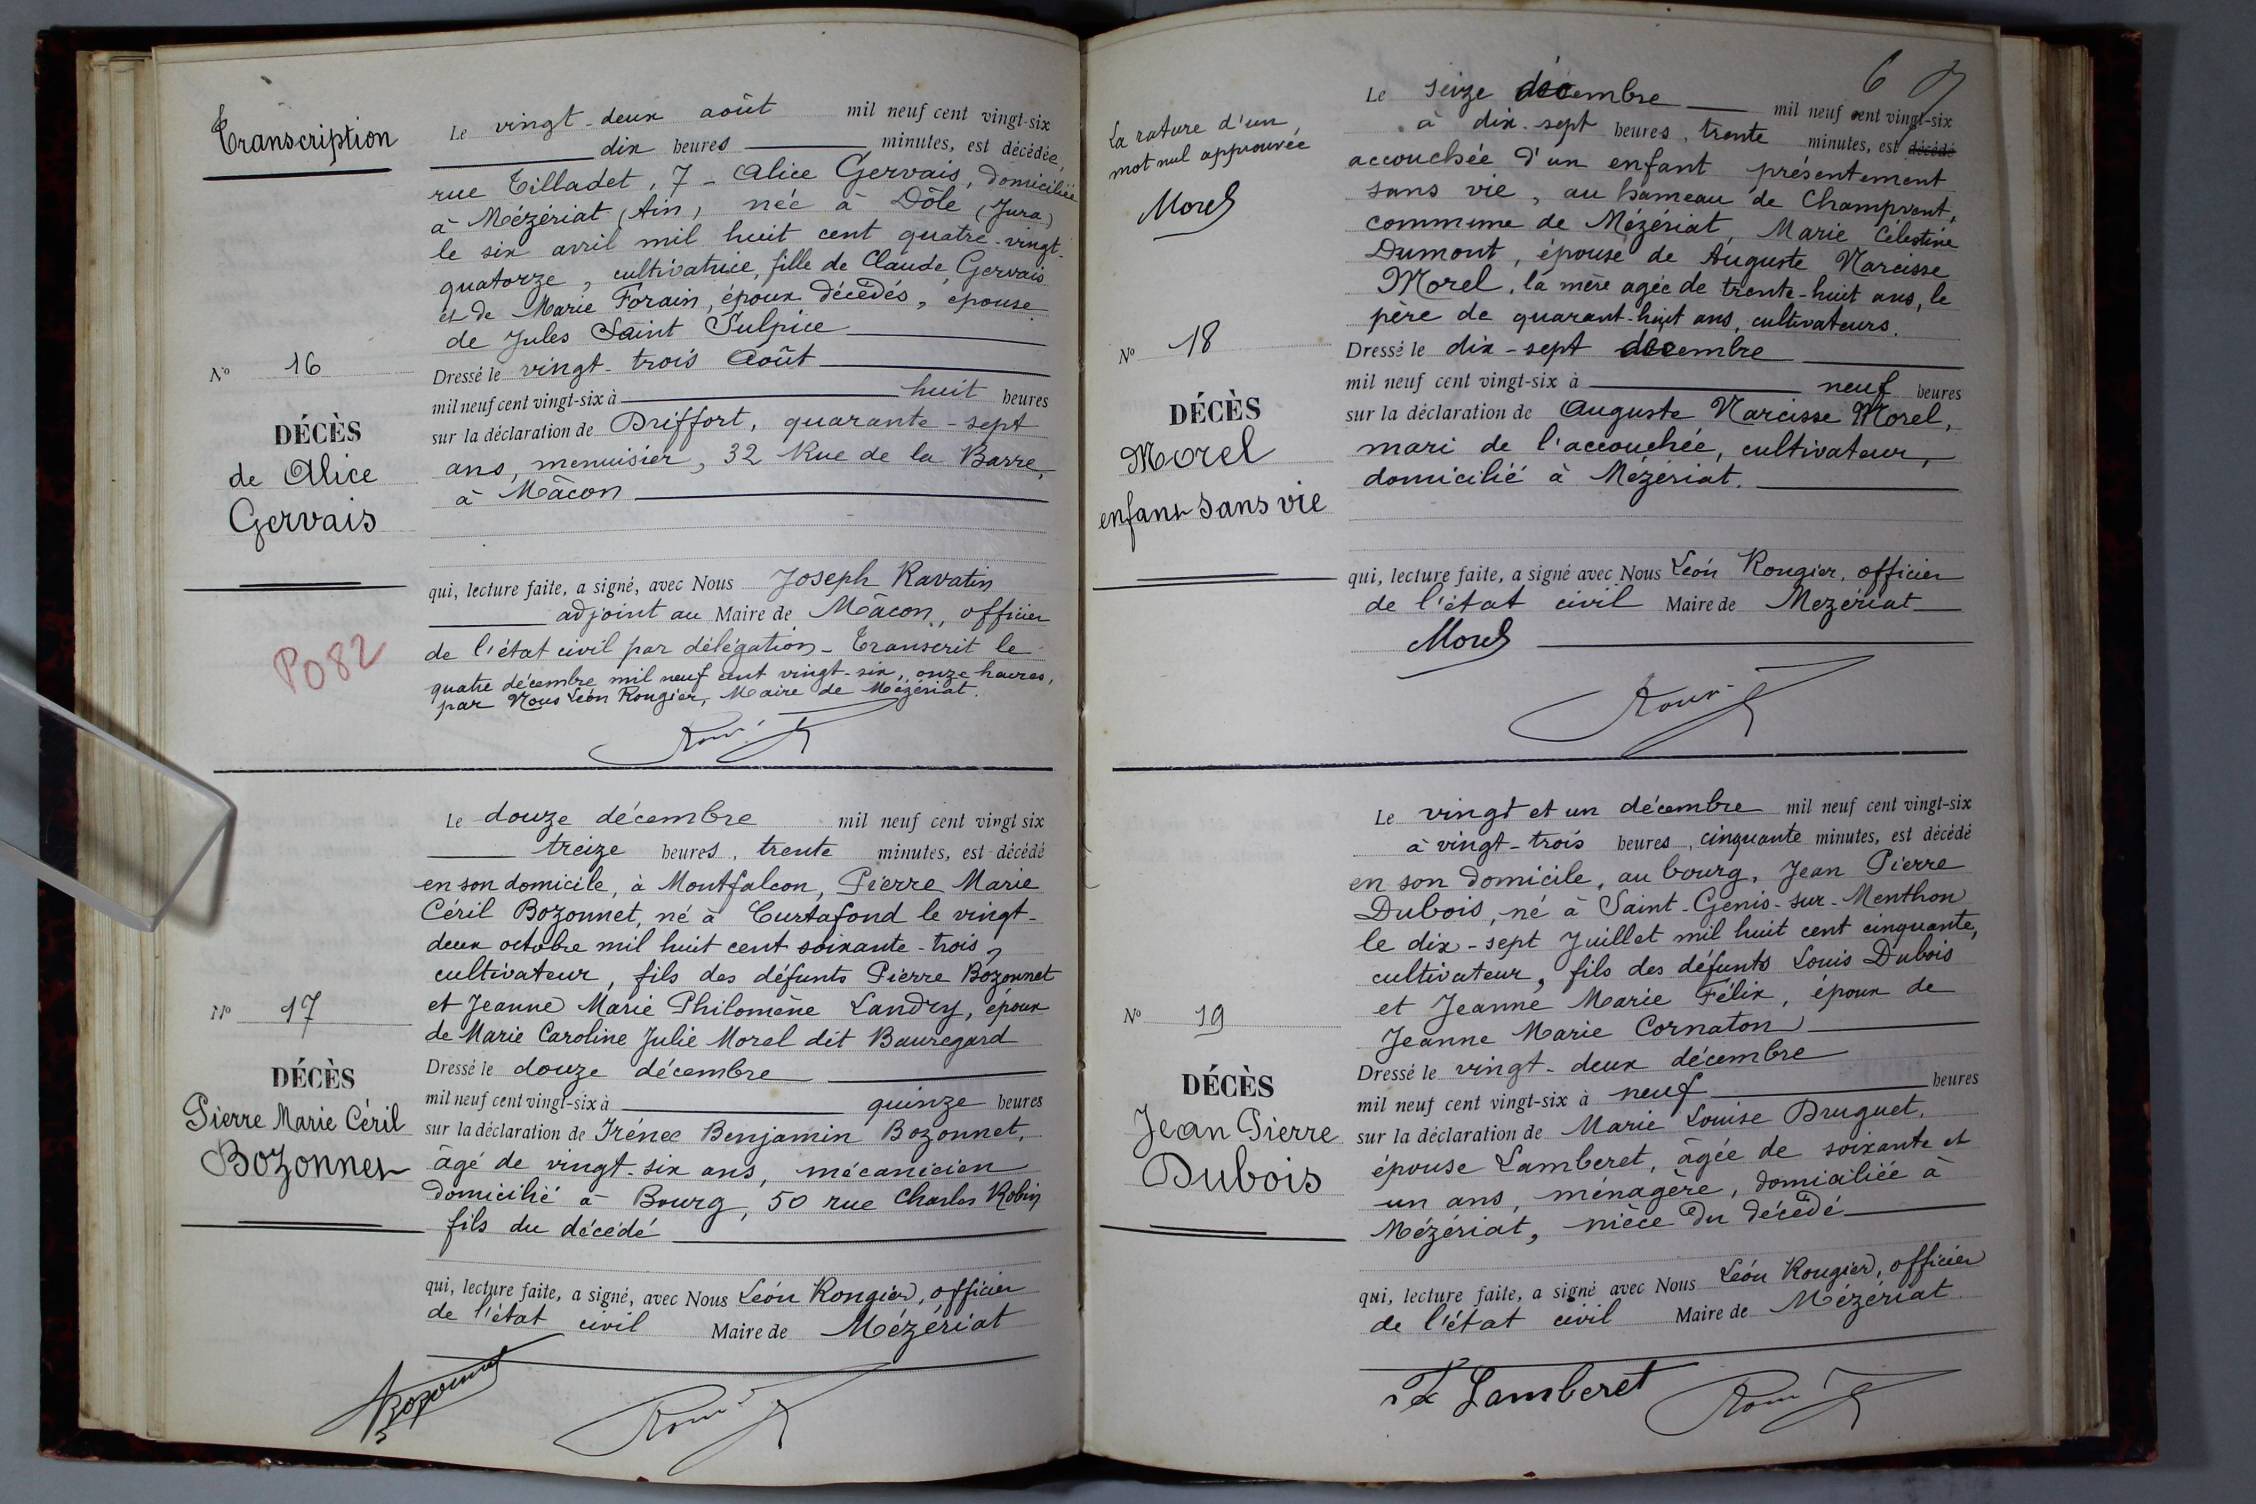 Transcription
Le vingt-deux août mil neuf cent vingt-six
dix heures minutes, est décédée,
rue Tilladet, 7 - Alice Gervais, domiciliée
à Mézériat (Ain), née à Dôle (Jura)
le six avril mil huit cent quatre-vingt-
quatorze, cultivatrice, fille de Claude Gervais
et de Marie Forain, époux décédés, épouse
de Jules Saint Sulpice
No 16
DÉCÈS
de Alice
Gervais
Dressé le vingt-trois Août
mil neuf cent vingt-six à huit heures
sur la déclaration de Driffort, quarante-sept
ans, menuisier, 32 Rue de la Barre,
à Mâcon
qui, lecture faite, a signé, avec Nous Joseph Ravatin
adjoint au Maire de Mâcon, officier
de l'état civil par délégation - Transcrit le
quatre décembre mil neuf cent vingt-six, onze heures,
par Nous Léon Rougier, Maire de Mézériat.
P082
Le douze décembre mil neuf cent vingt six
treize heures, trente minutes, est décédé
en son domicile, à Montfalcon, Pierre Marie
Céril Bozonnet, né à Curtafond le vingt-
deux octobre mil huit cent soixante-trois,
cultivateur, fils des défunts Pierre Bozonnet
et Jeanne Marie Philomène Landry, époux
de Marie Caroline Julie Morel dit Bauregard
No 17
DÉCÈS
Pierre Marie Céril
Bozonnet
Dressé le douze décembre
mil neuf cent vingt-six à quinze heures
sur la déclaration de Irénée Benjamin Bozonnet,
âgé de vingt-six ans, mécanicien
domicilié à Bourg, 50 rue Charles Robin
fils du décédé
qui, lecture faite, a signé, avec Nous Léon Rougier, officier
de l'état civil Maire de Mézériat
Bozonnet
6
La rature d'un
mot nul approuvée
Morel
Le seize décembre mil neuf cent vingt-six
à dix-sept heures, trente minutes, est décédé
accouchée d'un enfant présentement
sans vie, au hameau de Champvent,
commune de Mézériat, Marie Célestine
Dumont, épouse de Auguste Narcisse
Morel, la mère agée de trente-huit ans, le
père de quarant-huit ans, cultivateurs.
No 18
DÉCÈS
Morel
enfant sans vie
Dressé le dix-sept décembre
mil neuf cent vingt-six à neuf heures
sur la déclaration de Auguste Narcisse Morel,
mari de l'accouchée, cultivateur,
domicilié à Mézériat.
qui, lecture faite, a signé avec Nous Léon Rougier, officier
de l'état civil Maire de Mezériat
Morel
Le vingt et un décembre mil neuf cent vingt-six
à vingt-trois heures, cinquante minutes, est décédé
en son domicile, au bourg, Jean Pierre
Dubois, né à Saint-Genis-sur-Menthon
le dix-sept Juillet mil huit cent cinquante,
cultivateur, fils des défunts Louis Dubois
et Jeanne Marie Félix, époux de
Jeanne Marie Cornaton
No 19
DÉCÈS
Jean Pierre
Dubois
Dressé le vingt-deux décembre
mil neuf cent vingt-six à neuf heures
sur la déclaration de Marie Louise Druguet,
épouse Lamberet, âgée de soixante et
un ans, ménagère, domiciliée à
Mézériat, nièce du décédé
qui, lecture faite, a signé avec Nous Léon Rougier, officier
de l'état civil Maire de Mézériat
Lamberet